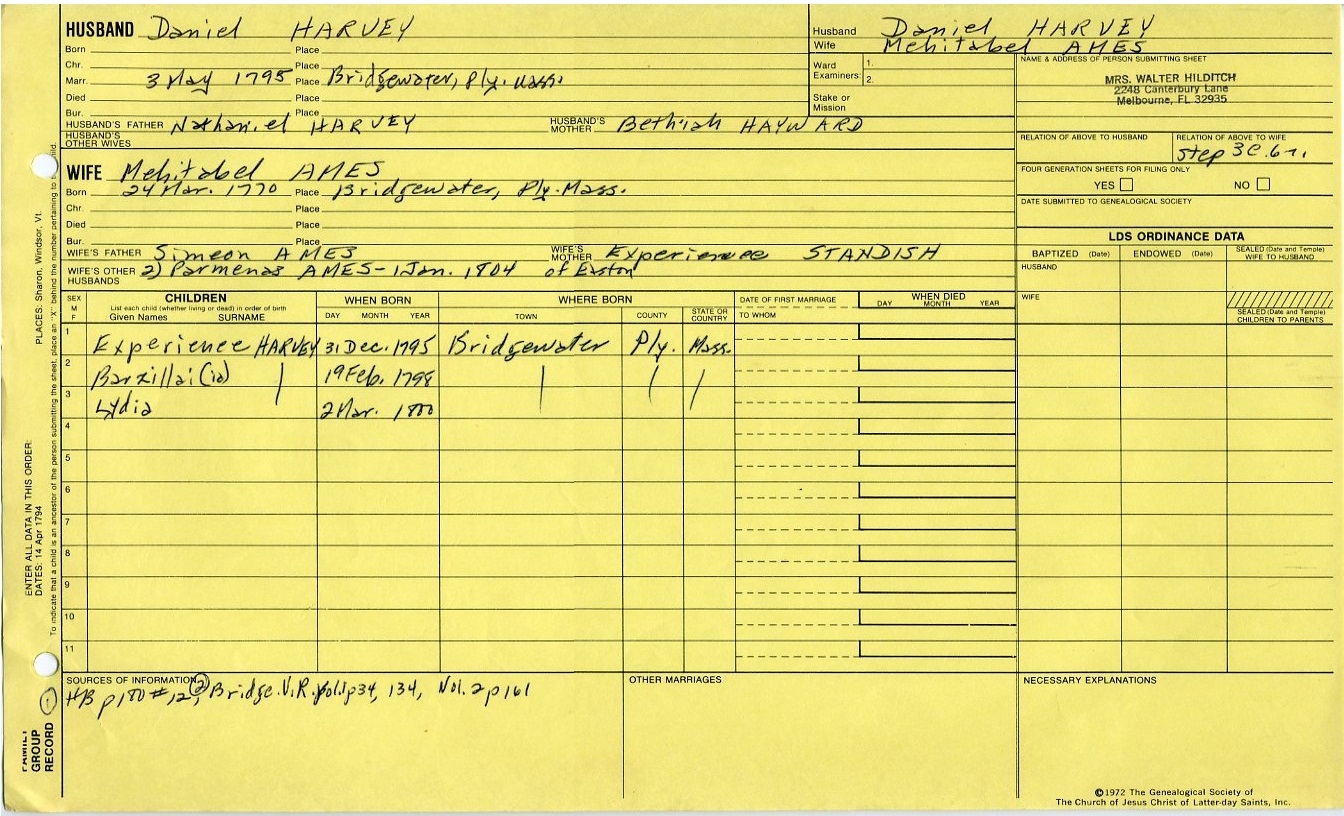 HUSBAND Daniel HARVEY
Born Place
Chr. Place
Marr. 3 May 1795 Place Bridgewater, Ply. Mass.
Died Place
Bur. Place
HUSBAND'S FATHER Nathaniel HARVEY HUSBAND'S MOTHER Bethiah HAYWARD
HUSBAND'S OTHER WIVES
WIFE Mehitabel AMES
Born 24 Mar. 1770 Place Bridgewater, Ply. Mass.
Chr. Place
Died Place
Bur. Place
WIFE'S FATHER Simeon AMES WIFE'S MOTHER Experience STANDISH
WIFE'S OTHER HUSBANDS 2) Parmenas AMES - 1 Jan. 1804 of Easton
Husband Daniel HARVEY
Wife Mehitabel AMES
Ward Examiners: 1.
2.
Stake or Mission
NAME & ADDRESS OF PERSON SUBMITTING SHEET
MRS. WALTER HILDITCH
2248 Canterbury Lane
Melbourne, FL 32935
RELATION OF ABOVE TO HUSBAND RELATION OF ABOVE TO WIFE
step 3C.6r.
FOUR GENERATION SHEETS FOR FILING ONLY
YES NO
DATE SUBMITTED TO GENEALOGICAL SOCIETY
LDS ORDINANCE DATA
BAPTIZED (Date) ENDOWED (Date) SEALED (Date and Temple) WIFE TO HUSBAND
HUSBAND
WIFE
SEALED (Date and Temple) CHILDREN TO PARENTS
SEX M F CHILDREN WHEN BORN WHERE BORN DATE OF FIRST MARRIAGE WHEN DIED
List each child (whether living or dead) in order of birth
Given Names SURNAME DAY MONTH YEAR TOWN COUNTY STATE OR COUNTRY TO WHOM DAY MONTH YEAR
1 Experience HARVEY 31 Dec. 1795 Bridgewater Ply. Mass.
2 Barzillai (ia) 19 Feb. 1798
3 Lydia 2 Mar. 1800
4
5
6
7
8
9
10
11
SOURCES OF INFORMATION
HB p180 #12, (2) Bridge. V.R. Vol. 1 p34, 134, Vol. 2 p161
OTHER MARRIAGES
NECESSARY EXPLANATIONS
©1972 The Genealogical Society of
The Church of Jesus Christ of Latter-day Saints, Inc.
PLACES: Sharon, Windsor, Vt.
ENTER ALL DATA IN THIS ORDER:
DATES: 14 Apr 1794
To indicate that a child is an ancestor of the person submitting the sheet, place an "X" behind the number pertaining to child.
FAMILY GROUP RECORD
1